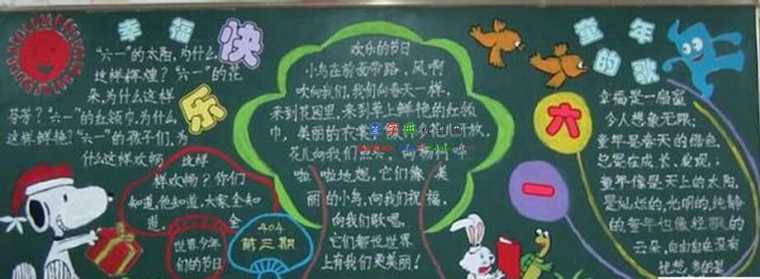 幸福快乐
"六一"的太阳，为什么
这样辉煌？"六一"的花
朵，为什么这样
芬芳？"六一"的红领巾，为什么
这样鲜艳？"六一"的孩子们，为
什么这样欢畅 这样
样欢畅？你们
知道，他知道，大家全知
道。 全
世界少年
们的节日
404
第三期
欢乐的节日
小鸟在前面带路，风啊
吹向我们，我们向春天一样，
来到花园里，来到掌上鲜艳的红领
巾，美丽的衣裳
花儿向我们点头，向杨树哗
啦啦地想，它们像美
丽的小鸟，向我们祝福，
向我们歌唱。
它们都说世界
上有我们更美丽！
童年
的歌
六
一
幸福是一扇窗
令人想象无限；
童年是春天的绿色，
总是在成长、业观；
童年像是天上的太阳，
是灿烂的，光明的，纯静
的，童年也像轻歌的
云朵，自由自在没有
忧愁，多的是